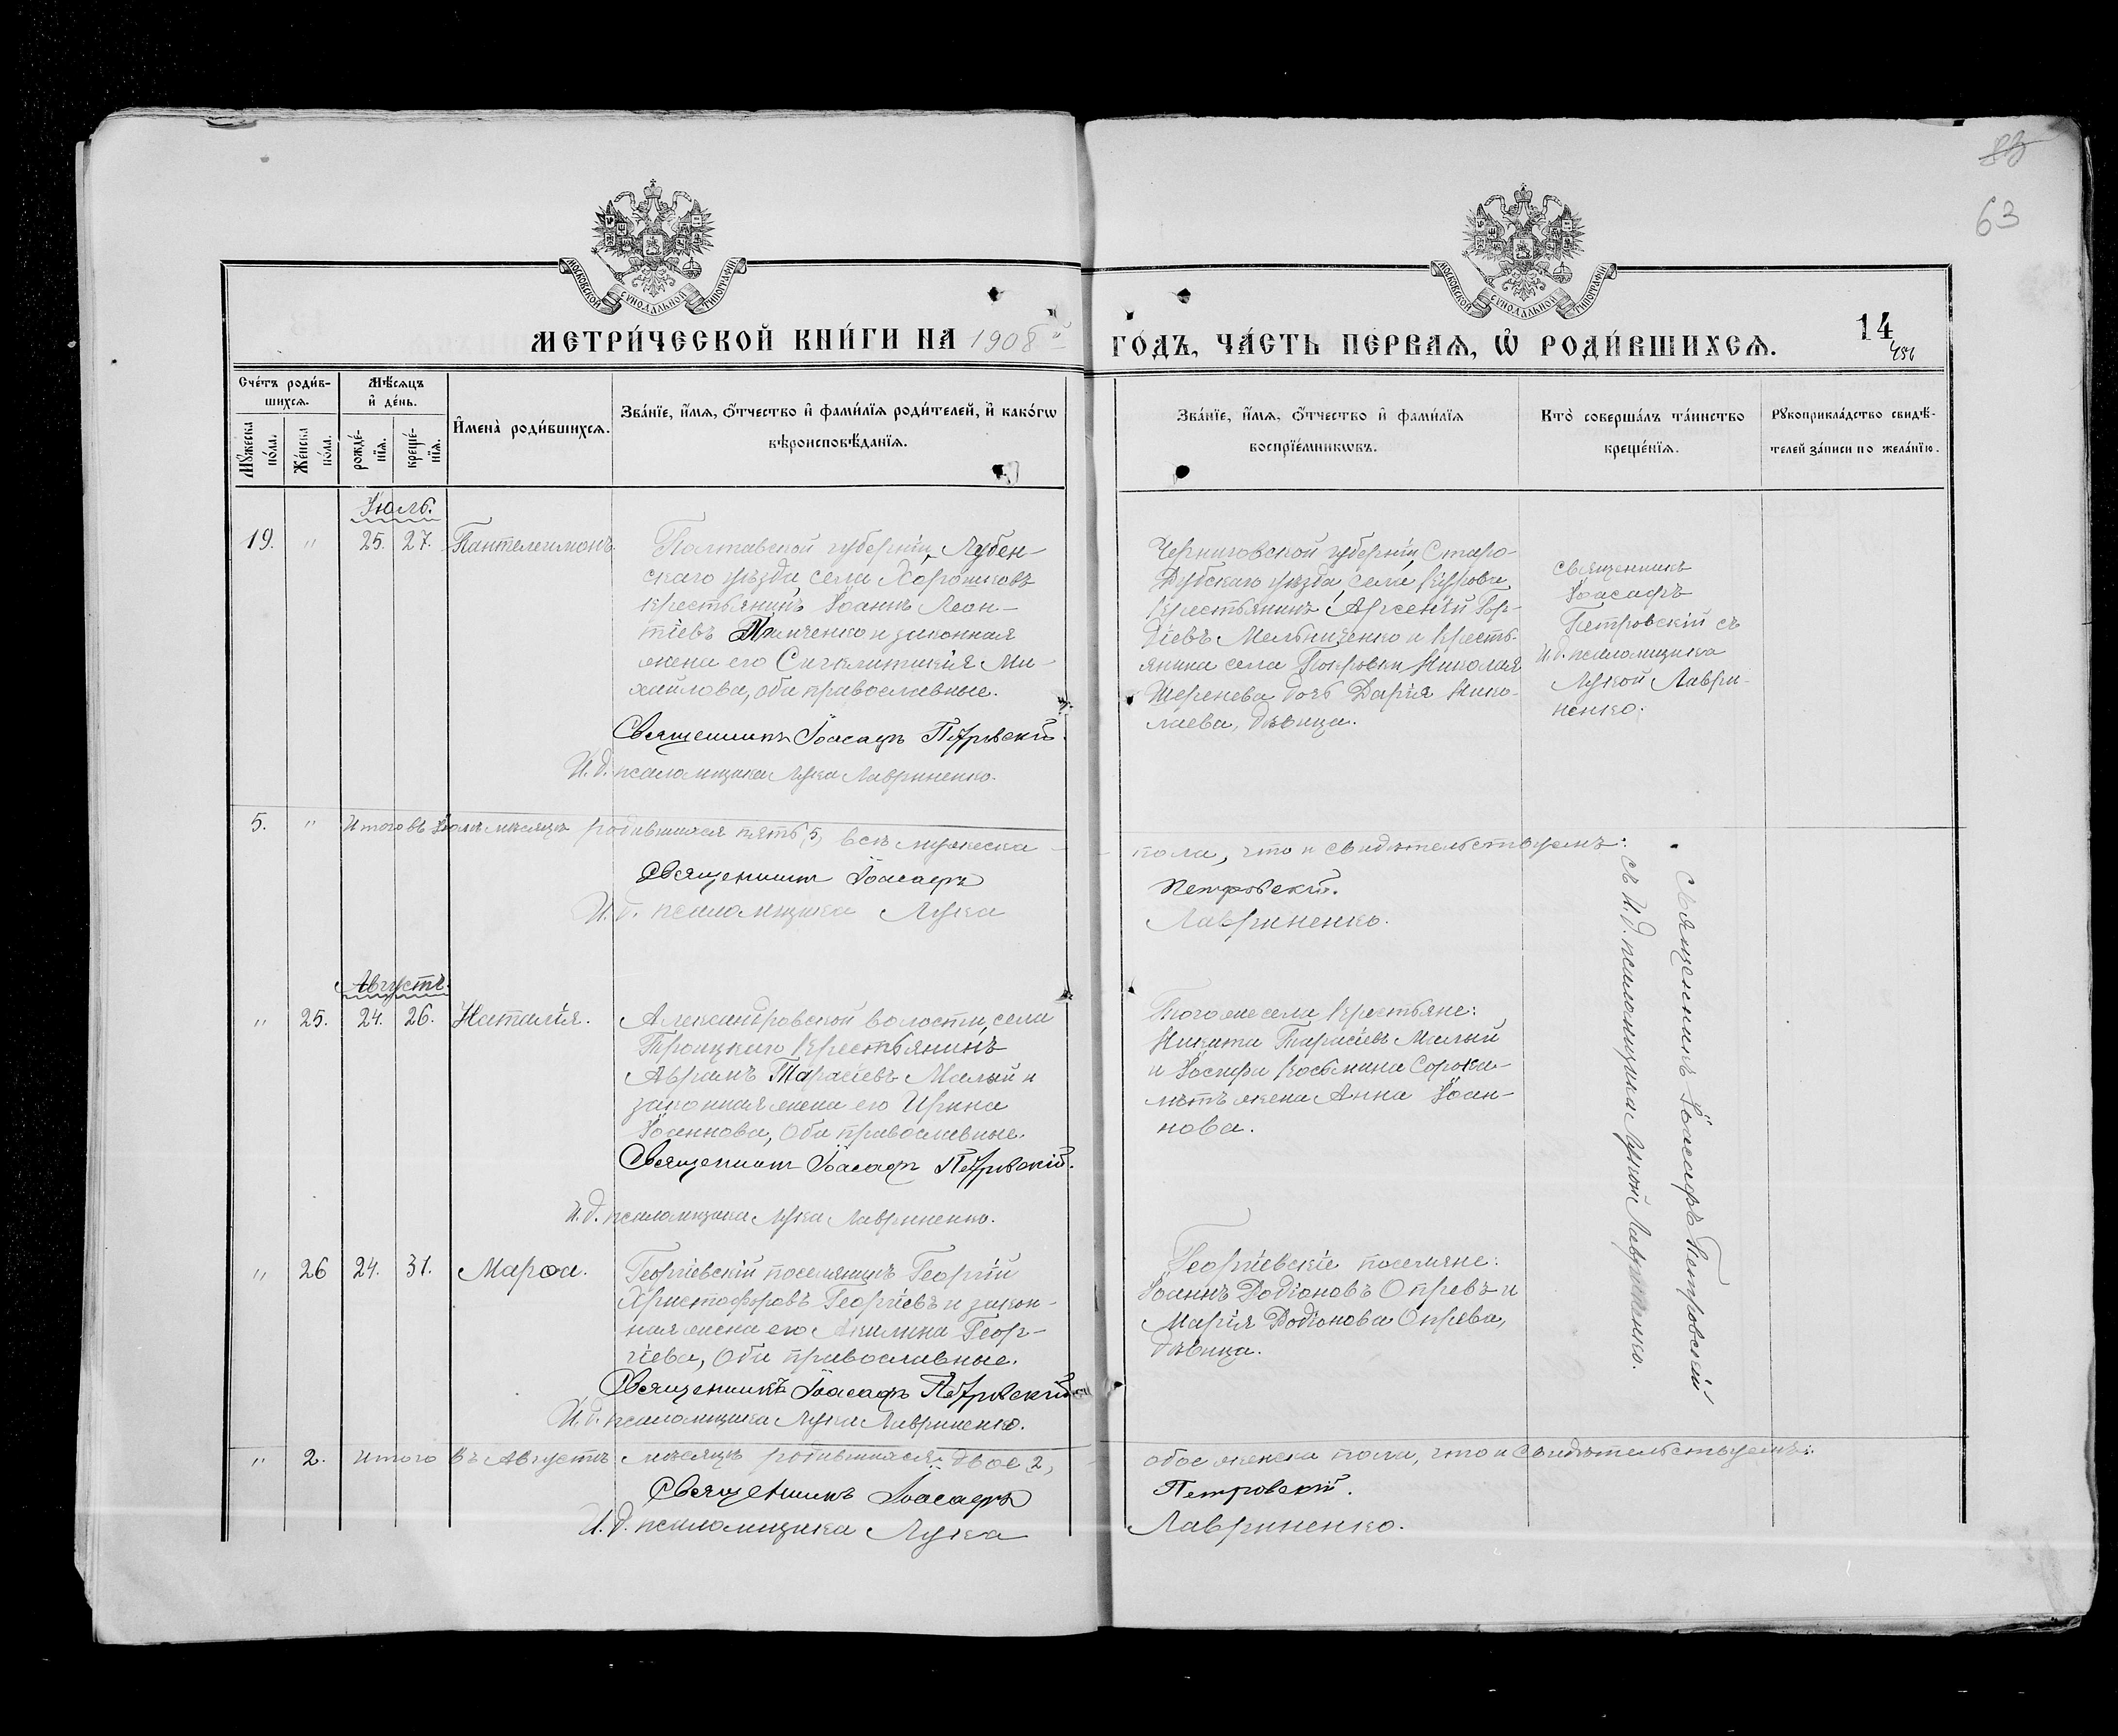 83
63
МОСКОВСКОЙ СѴНОДАЛЬНОЙ ТИПОГРАФІИ
МОСКОВСКОЙ СѴНОДАЛЬНОЙ ТИПОГРАФІИ
МЕТРИ́ЧЕСКОЙ КНИ́ГИ НА 1908й
ГО́ДЪ, ЧА́СТЬ ПЕ́РВАЯ, Ѡ РОДИ́ВШИХСЯ.
14
Сче́тъ роди́в-
шихся.
Мѣ́сяцъ
и҆ де́нь.
Мꙋ́жеска
по́ла.
Же́нска
по́ла.
рожде́-
нїя.
креще́-
нїя.
И҆мена̀ роди́вшихся.
Зва́нїе, и҆́мя, ѻ҆́тчество и҆ фами́лїя роди́телей, и҆ како́гѡ
вѣроисповѣ́данїя.
Зва́нїе, и҆́мя, ѻ҆́тчество и҆ фами́лїя
воспрїе́мникѡвъ.
Кто̀ соверша́лъ та́инство
креще́нїя.
Рꙋкоприкла́дство свидѣ́-
телей за́писи по жела́нїю.
Іюль.
19. " 25. 27. Пантелеимонъ.
Полтавской губерніи, Лубен-
скаго уѣзда, села Хорошковъ
крестьянинъ Іоаннъ Леон-
тіевъ и законная
жена его Сигклитикія Ми-
хаилова, оба православные.
Священникъ Іоасафъ Петровскій.
И. д. псаломщика Лука Лавриненко.
Черниговской губерніи, Старо-
Дубскаго уѣзда, села
крестьянинъ Арсеній Гор-
діевъ Мельниченко и кресть-
янина села Покровки Николая
дочь Дарія Нико-
лаева, дѣвица.
Священникъ
Іоасафъ
Петровскій съ
И. д. псаломщика
Лукой Лаври-
ненко.
5. " Итого въ Іюлѣ мѣсяцѣ родившихся пять, 5, всѣ мужеска
пола, что и свидѣтельствуемъ:
Священникъ Іоасафъ
Петровскій.
И. д. псаломщика Лука
Лавриненко.
Августъ.
" 25. 24. 26. Наталія.
Александровской волости, села
Троицкаго крестьянинъ
Аврамъ Тарасіевъ Малый и
законная жена его Ирина
Іоаннова, оба православные.
Священникъ Іоасафъ Петровскій.
И. д. псаломщика Лука Лавриненко.
Того же села крестьяне:
Никита Тарасіевъ Малый
и Іосифа Косьмина Сорока-
лѣтъ жена Анна Іоан-
нова.
Священникъ Іоасафъ Петровскій
съ И. д. псаломщика Лукой Лавриненко.
" 26 24. 31. Марѳа.
Георгіевскій поселянинъ Георгій
Христофоровъ Георгіевъ и закон-
ная жена его Акилина Геор-
гіева, оба православные.
Священникъ Іоасафъ Петровскій
И. д. псаломщика Лука Лавриненко.
Георгіевскіе поселяне:
Іоаннъ Родіоновъ Опревъ и
Марія Родіонова Опрева,
дѣвица.
" 2. Итого въ Августѣ мѣсяцѣ родившихся двое 2,
обое женска пола, что и свидѣтельствуемъ:
Священникъ Іоасафъ
Петровскій.
И. д. псаломщика Лука
Лавриненко.